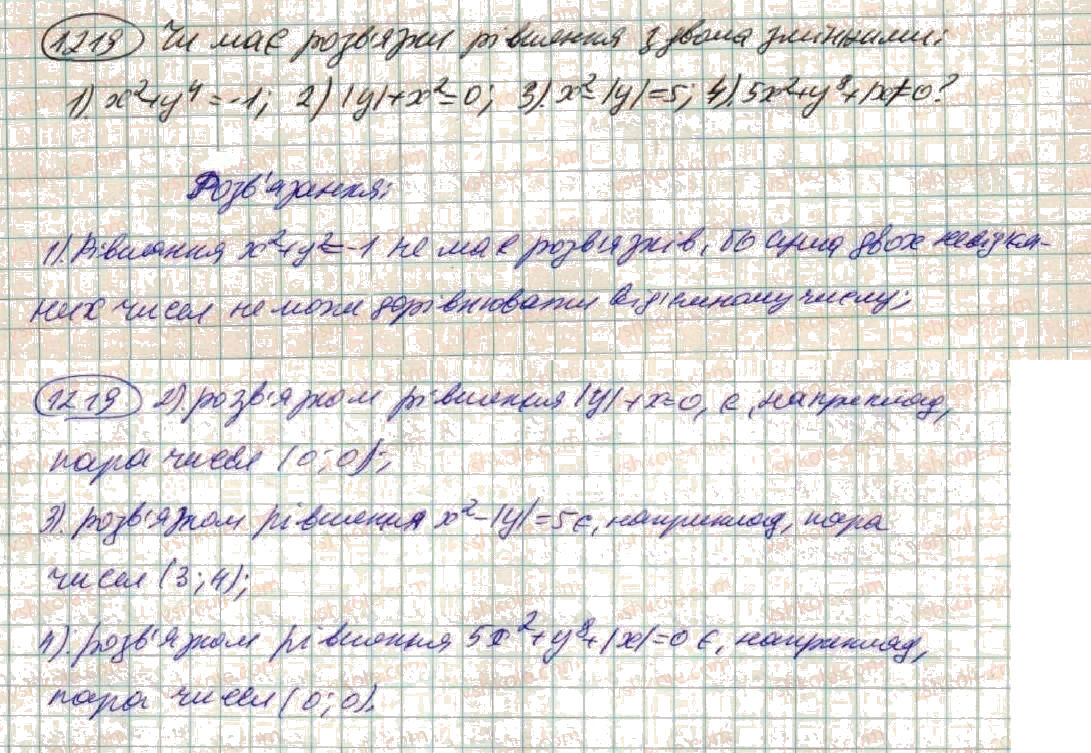 1219 Чи має розв'язки рівняння з двома змінними:
1). x²+y⁴=-1; 2) |y|+x²=0; 3). x²-|y|=5; 4). 5x²+y⁸+|x|=0?
Розв'язання:
1). Рівняння x²+y²=-1 не має розв'язків, бо сума двох невід'єм-
них чисел не може дорівнювати від'ємному числу;
1219 2). розв'язком рівняння |y|+x=0, є, наприклад,
пара чисел (0;0);
3). розв'язком рівняння x²-|y|=5 є, наприклад, пара
чисел (3;4);
4). розв'язком рівняння 5x²+y⁸+|x|=0 є, наприклад,
пара чисел (0;0).